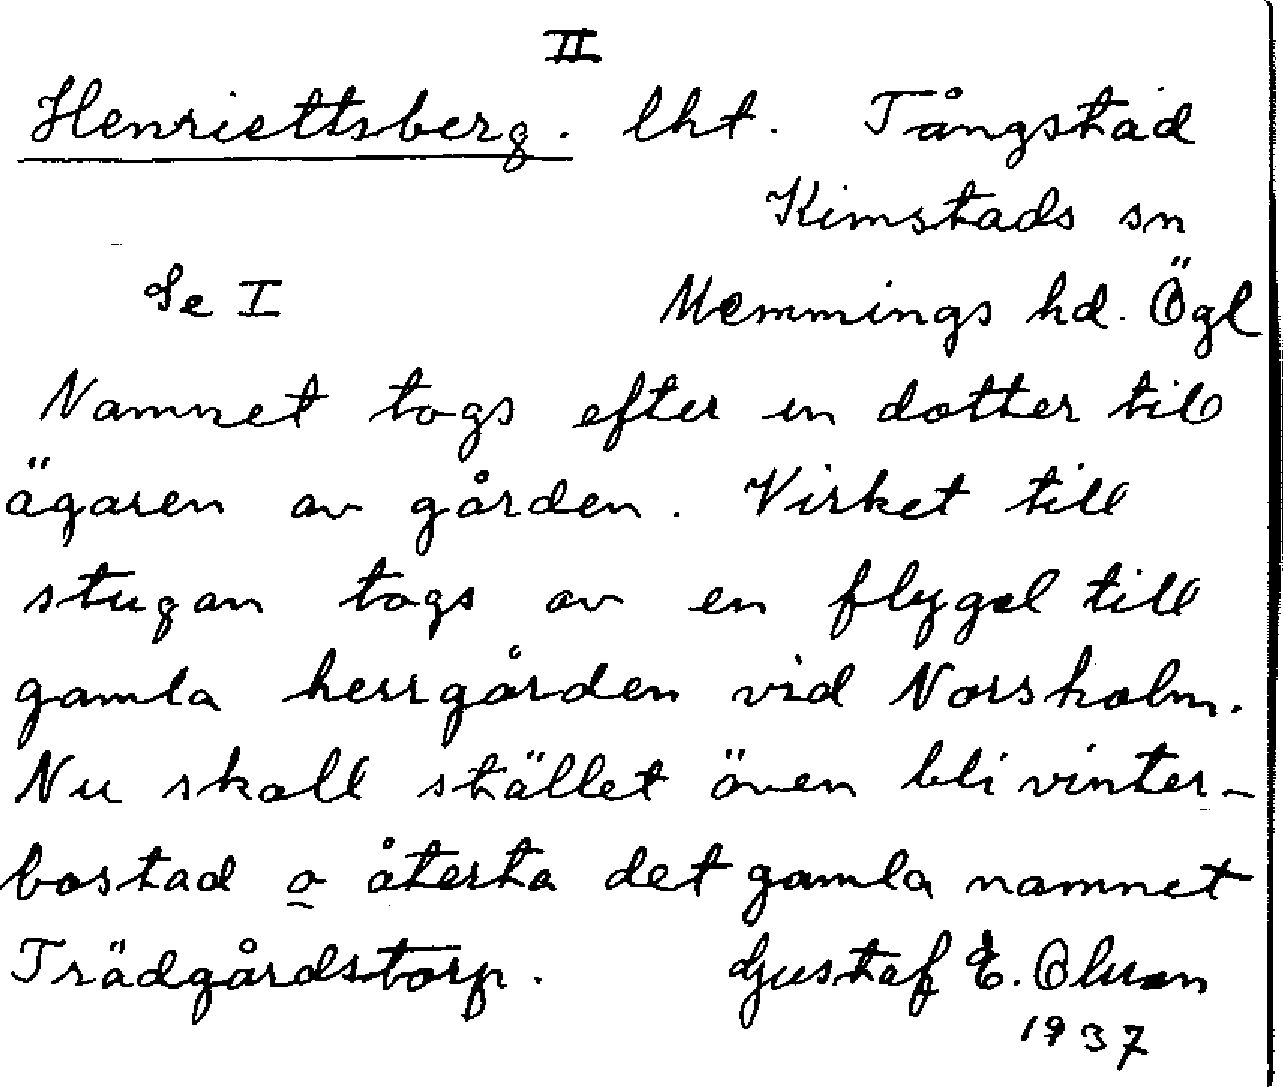 II
Henriettsberg. lht. Tångstad
Kimstads sn
Se I Memmings hd. Ögl
Namnet togs efter en dotter till
ägaren av gården. Virket till
stugan togs av en flygel till
gamla herrgården vid Norsholm.
Nu skall stället även bli vinter-
bostad o återta det gamla namnet
Trädgårdstorp. Gustaf E.
1937